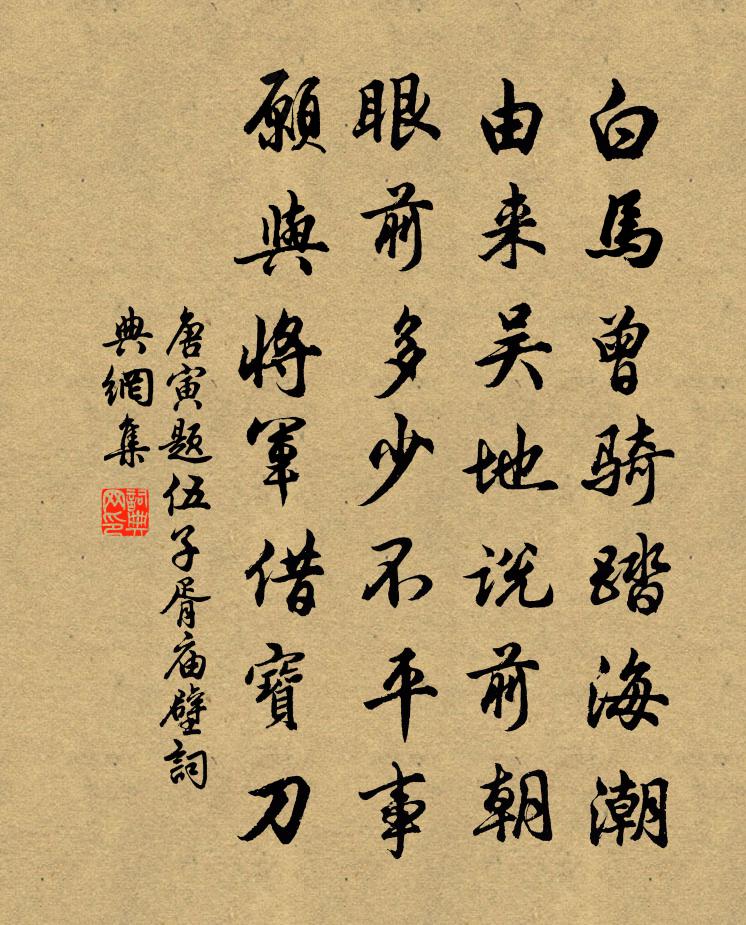 白馬曾騎踏海潮
由来吴地説前朝
眼前多少不平事
願與將軍借寶刀
唐寅题伍子胥庙壁詞
典網集
詞典網印